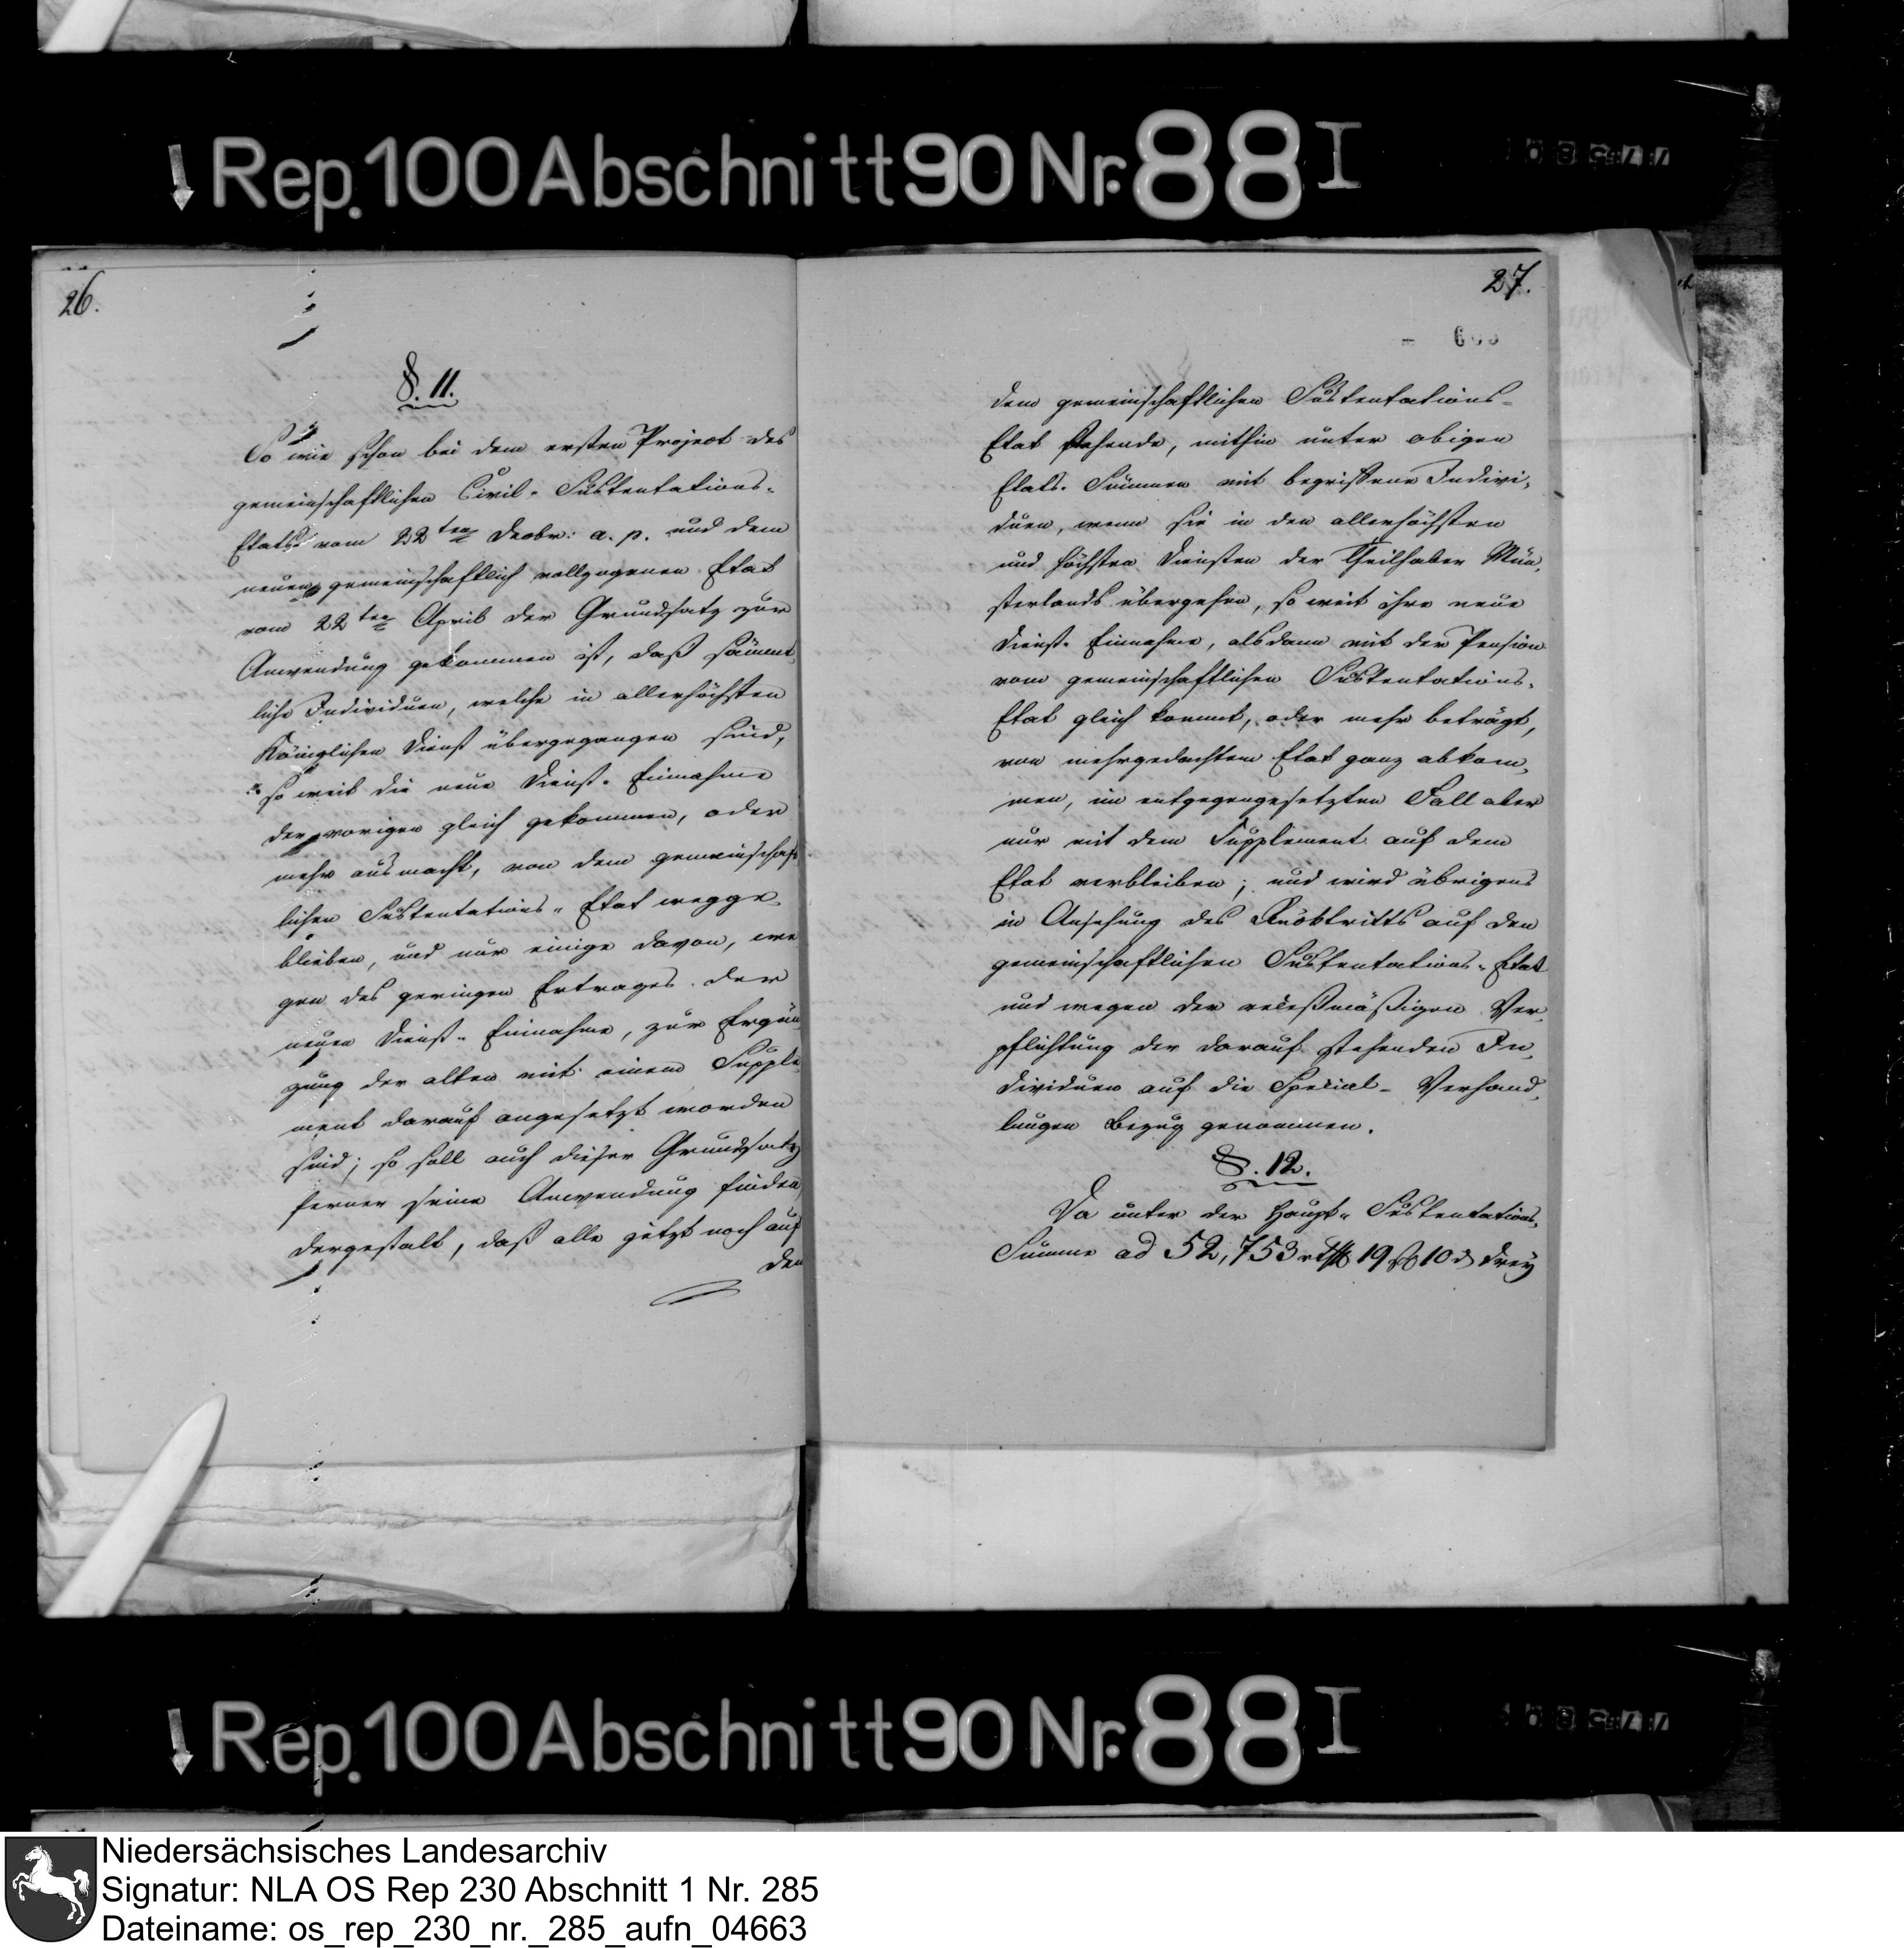 Rep. 100 Abschnitt 90 Nr. 88 I
26.
§. 11.
So wie schon bei dem ersten Project des
gemeinschaftlichen Civil-Sustentations-
Etats vom 22ten Decbr: a. p. und dem
neuen gemeinschaftlich vollzogenen Etat
vom 22ten April der Grundsatz zur
Anwendung gekommen ist, daß sämmt,
liche Individuen, welche in allerhöchsten
Königlichen Dienst übergegangen sind,
so weit die neue Dienst-Einnahme
der vorigen gleich gekommen, oder
mehr ausmacht, von dem gemeinschaft
lichen Sustentations-Etat wegge,
blieben, und nur einige davon, we
gen des geringen Ertrages der
neuen Dienst-Einnahme, zur Ergän
zung der alten mit einem Supple
ment darauf angesetzt worden
sind; so soll auch dieser Grundsatz
ferner seine Anwendung finden
dergestalt, daß alle jetzt noch auf
dem
27.
dem gemeinschaftlichen Sustentations-
Etat stehende, mithin unter obigen
Etats-Summen mit begriffene Indivi,
duen, wenn sie in den allerhöchsten
und höchsten Diensten der Theilhaber Mün,
sterlands übergehen, so weit ihre neue
Dienst-Einnahme, alsdann mit der Pension
vom gemeinschaftlichen Sustentations-
Etat gleich kommt, oder mehr beträgt,
von mehrgedachtem Etat ganz abkom,
men, im entgegengesetzten Fall aber
nur mit dem Supplement auf dem
Etat verbleiben; und wird übrigens
in Ansehung des Rücktritts auf den
gemeinschaftlichen Sustentations-Etat
und wegen der receßmäßigen Ver,
pflichtung der darauf stehenden In,
dividuen auf die Special-Verhand,
lungen Bezug genommen.
§. 12.
Da unter der Haupt-Sustentations,
Summe ad 52,753 rthl 19 ß 10 d drey
Rep. 100 Abschnitt 90 Nr. 88 I
Niedersächsisches Landesarchiv
Signatur: NLA OS Rep 230 Abschnitt 1 Nr. 285
Dateiname: os_rep_230_nr._285_aufn_04663